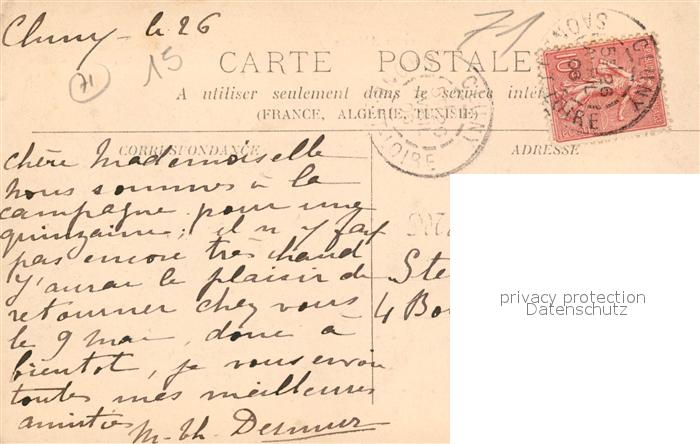 Cluny - le 26
71
15
71
CARTE POSTALE
A utiliser seulement dans le service inté
(FRANCE, ALGÉRIE, TUNISIE)
CORRESPONDANCE
ADRESSE
CLUNY
LOIRE
CLUNY
SAONE
LOIRE
10
chère Mademoiselle
nous sommes à la
campagne pour une
quinzaine; il n'y fait
pas encore très chaud
J'aurai le plaisir de
retourner chez vous
le 9 mai, donc à
bientôt, je vous envoie
toutes mes meilleures
amitiés
M-Th. Desmur
Ste
4 Bo
privacy protection
Datenschutz